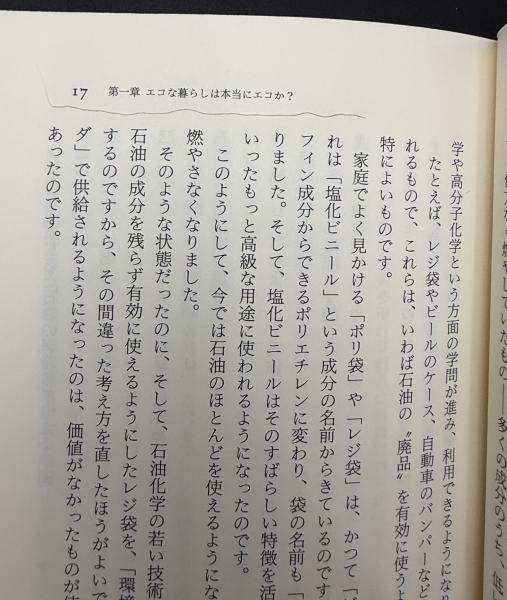 17 第一章 エコな暮らしは本当にエコか？
燃やしていたもの――多くの成分のうち、低
学や高分子化学という方面の学問が進み、利用できるようになり
たとえば、レジ袋やビールのケース、自動車のバンパーなど
れるもので、これらは、いわば石油の〝廃品〟を有効に使うよ
特によいものです。
家庭でよく見かける「ポリ袋」や「レジ袋」は、かつて「ビ
れは「塩化ビニール」という成分の名前からきているのです
フィン成分からできるポリエチレンに変わり、袋の名前も「
りました。そして、塩化ビニールはそのすばらしい特徴を活
いったもっと高級な用途に使われるようになったのです。
このようにして、今では石油のほとんどを使えるようにな
燃やさなくなりました。
そのような状態だったのに、そして、石油化学の若い技術
石油の成分を残らず有効に使えるようにしたレジ袋を、「環境
するのですから、その間違った考え方を直したほうがよいで
ダ」で供給されるようになったのは、価値がなかったものが使
あったのです。